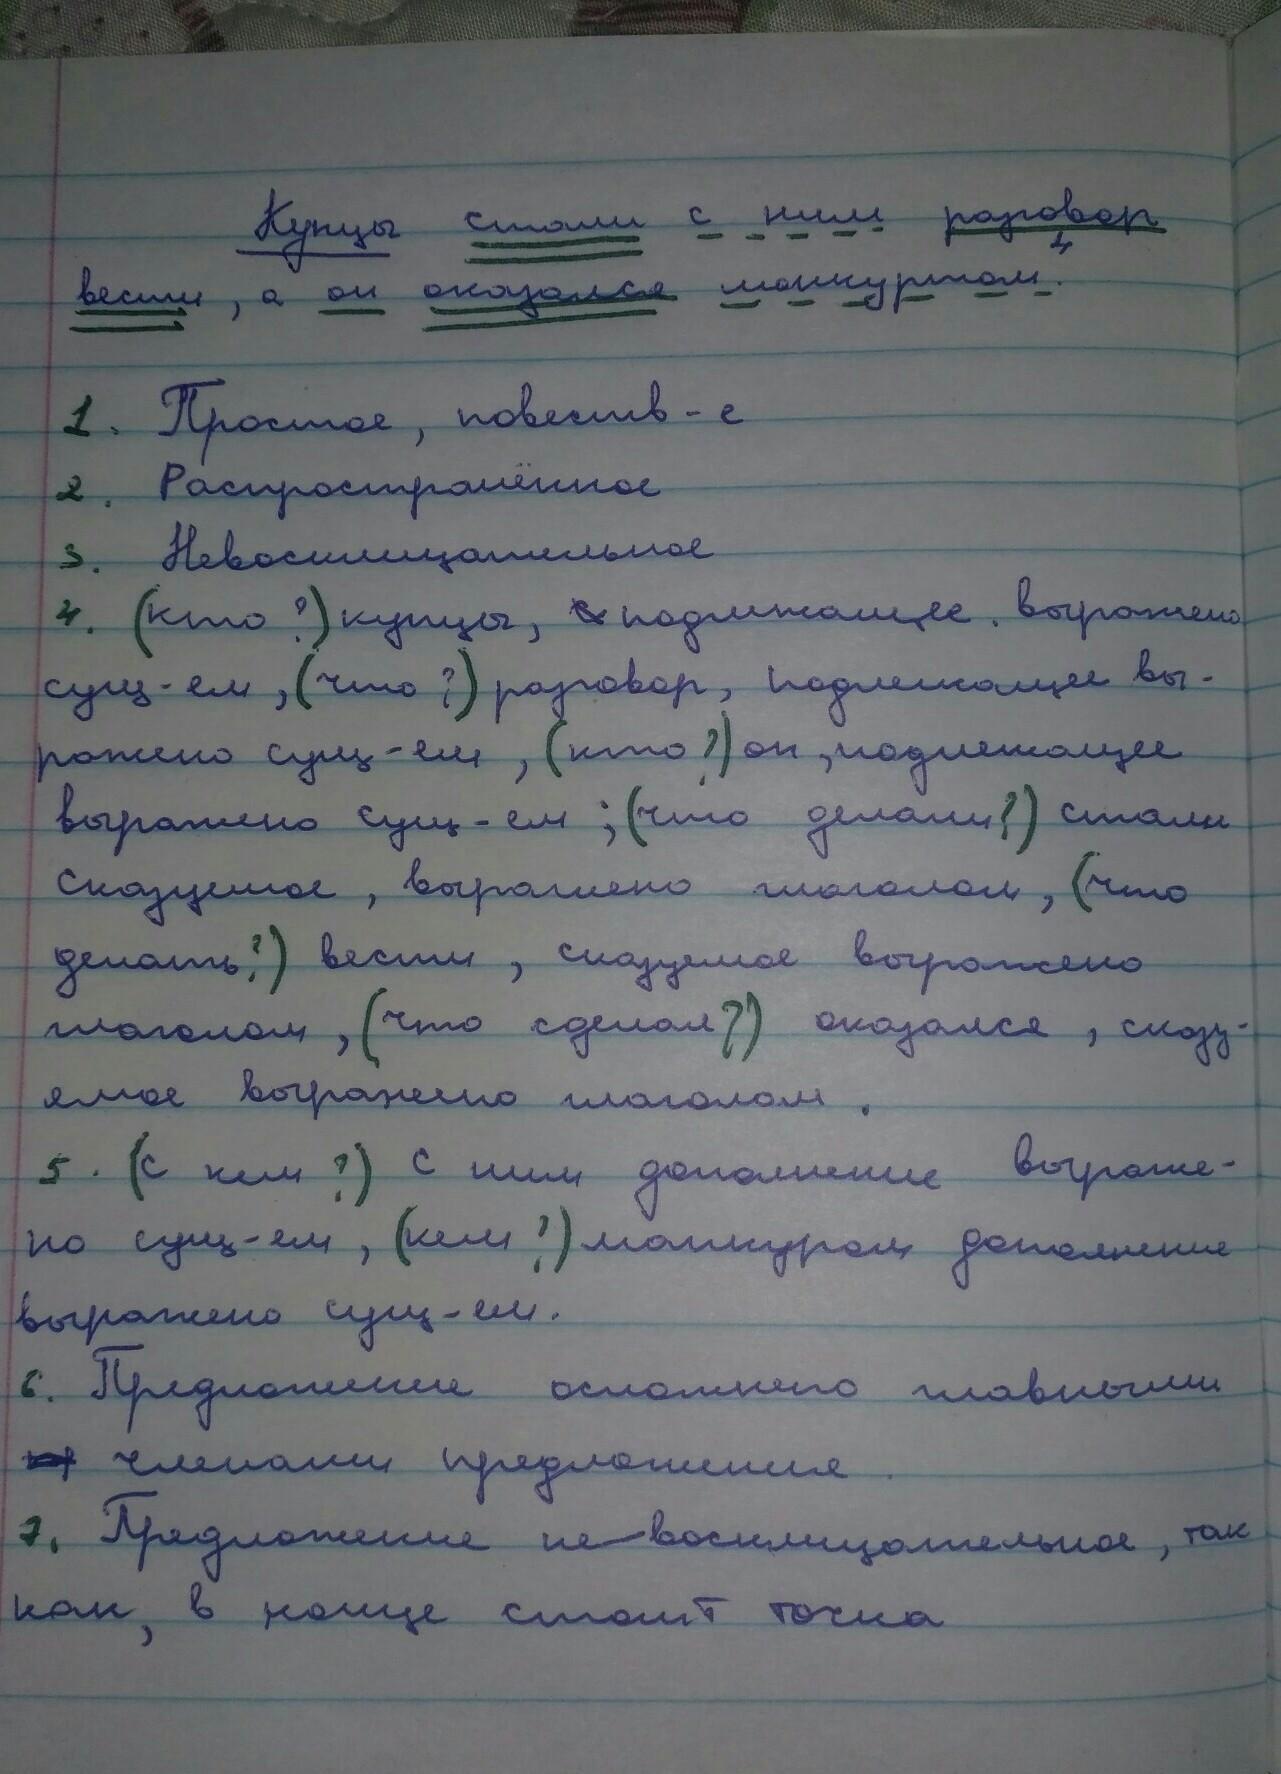 Купцы стали с ним разговор
вести, а он оказался манкуртом.
1. Простое, повеств-е
2. Распространённое
3. Невосклицательное
4. (кто?) купцы, подлежащее. выражено
сущ-ем, (что?) разговор, подлежащее вы-
ражено сущ-ем, (кто?) он, подлежащее
выражено сущ-ем; (что делали?) стали
сказуемое, выражено глаголом, (что
делать?) вести, сказуемое выражено
глаголом, (что сделал?) оказался, сказу-
емое выражено глаголом.
5. (с кем?) с ним дополнение выраже-
но сущ-ем, (кем?) манкуром дополнение
выражено сущ-ем.
6. Предложение осложнено главными
членами предложения.
7. Предложение не восклицательное, так
как, в конце стоит точка